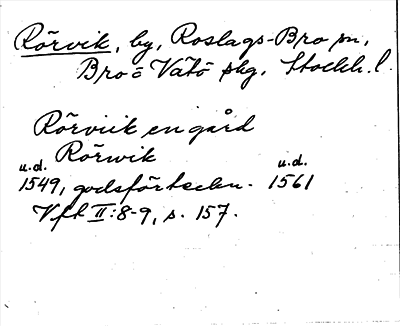 Rörvik, by, Roslags-Bro sn,
Bro o Vätö skg, Stockh. l.
Rörviik en gård
Rörwik
u.d. u.d.
1549, godsförteckn. 1561
Vfl II:8-9, s. 157.